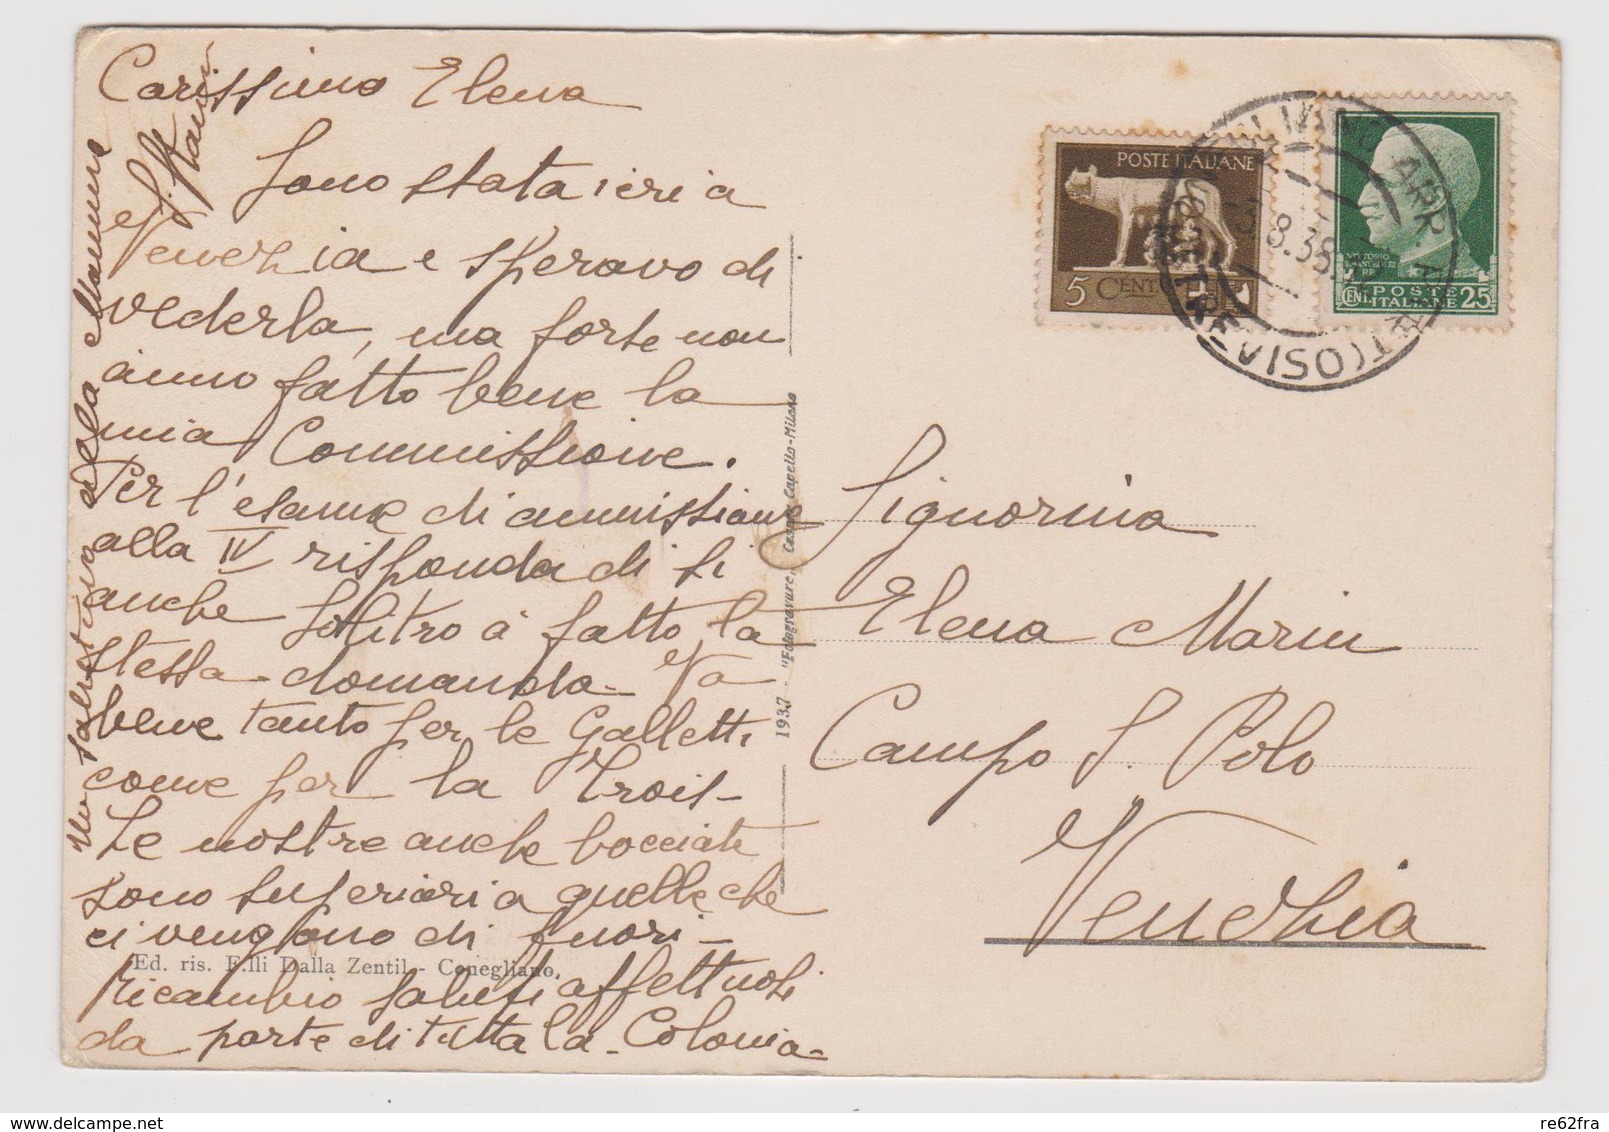 Carissima Elena
Sono stata ieri a
Venezia e speravo di
vederla, ma forse non
anno fatto bene la
mia Commissione.
Per l'esame di ammissione
alla IV risponda di si
anche Solitro à fatto la
stessa domanda. Va
bene tanto per le Galletti
come per la Trois-
Le nostre anche bocciate
sono superiori a quelle che
ci vengono di fuori-
Ricambio saluti affettuosi
da parte di tutta la Colonia-
Un salutino della Mamma
POSTE ITALIANE
5 CENT.
VITTORIO
EMANUELE III
RE
POSTE
CENT. ITALIANE 25
8.38
(OSTA
1937 - "Fotogravure" Cesare Capello-Milano
Signorina
Elena Marin
Campo S. Polo
Venezia
Ed. ris. F.lli Dalla Zentil - Conegliano.
re62fra